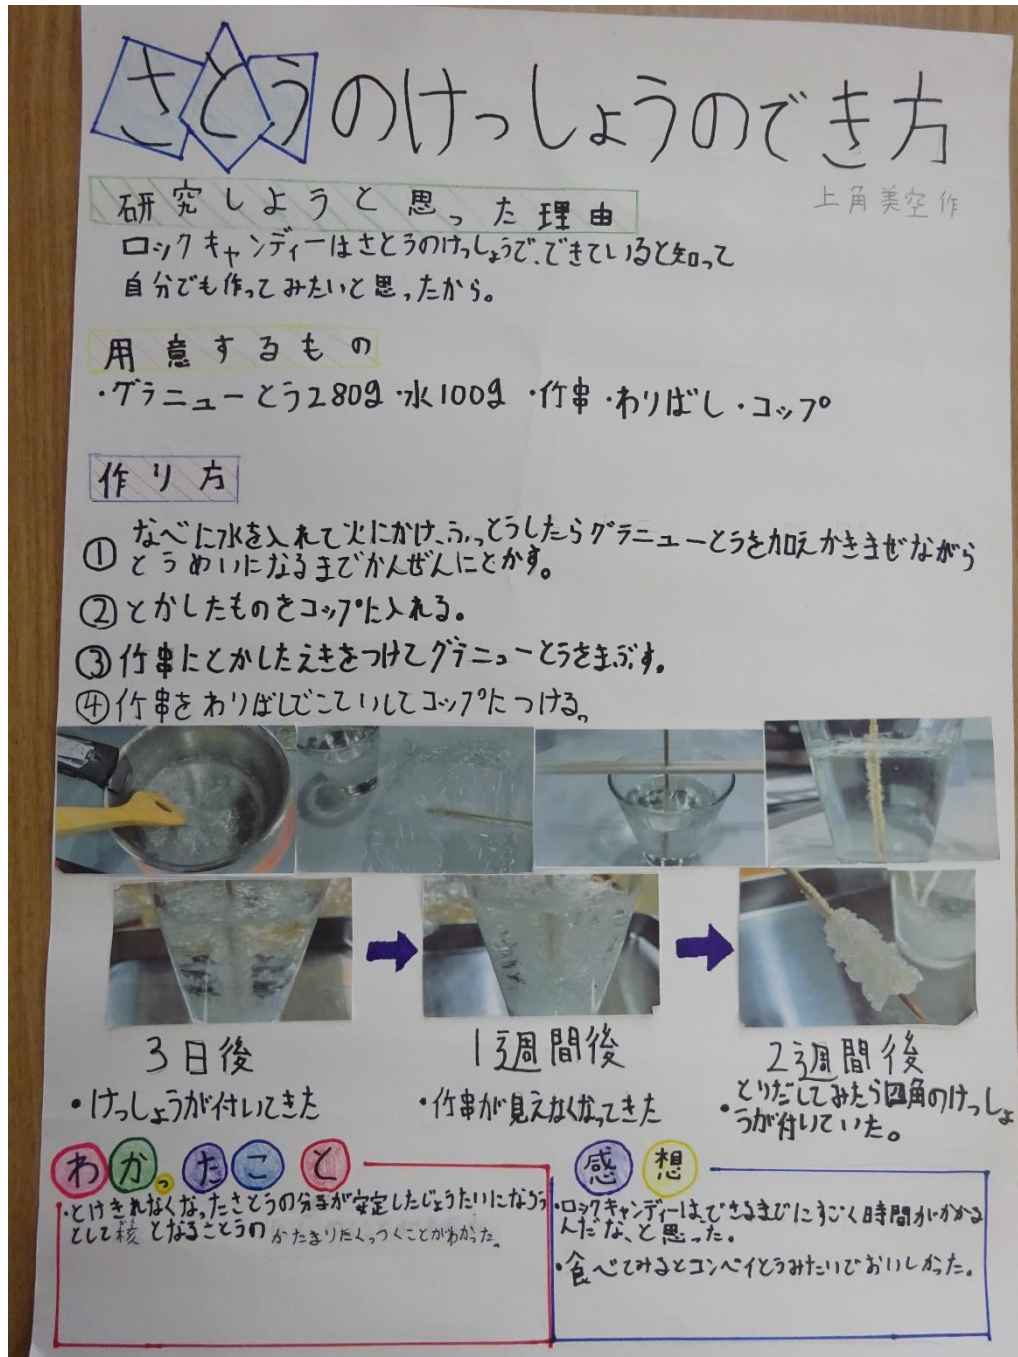 さとうのけっしょうのでき方
上角美空作
研究しようと思った理由
ロックキャンディーはさとうのけっしょうで、できていると知って
自分でも作ってみたいと思ったから。
用意するもの
・グラニューとう280g ・水100g ・竹串 ・わりばし ・コップ
作り方
① なべに水を入れて火にかけ、ふっとうしたらグラニューとうを加えかきまぜながら
とうめいになるまでかんぜんにとかす。
②とかしたものをコップに入れる。
③竹串にとかしたえきをつけてグラニューとうをまぶす。
④竹串をわりばしでこていしてコップにつける。
3日後
・けっしょうが付いてきた
1週間後
・竹串が見えなくなってきた
2週間後
・とりだしてみたら四角のけっしょ
うが付いていた。
わかったこと
・とけきれなくなったさとうの分子が安定したじょうたいになろう
として核となるさとうのかたまりにくっつくことがわかった。
感想
・ロックキャンディーは、できるまでにすごく時間がかかる
んだな、と思った。
・食べてみるとコンペイとうみたいでおいしかった。